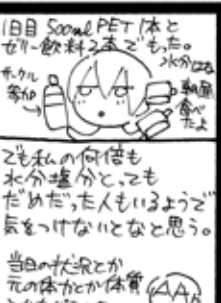 1日目 500ml PET 1本と
ゼリー飲料2本でもった。
水分は
朝昼
食べ
たよ
でも私の何倍も
水分塩分とっても
だめだった人もいるようで
気をつけないとなと思う。
当日の状況とか
元の体力とか体質